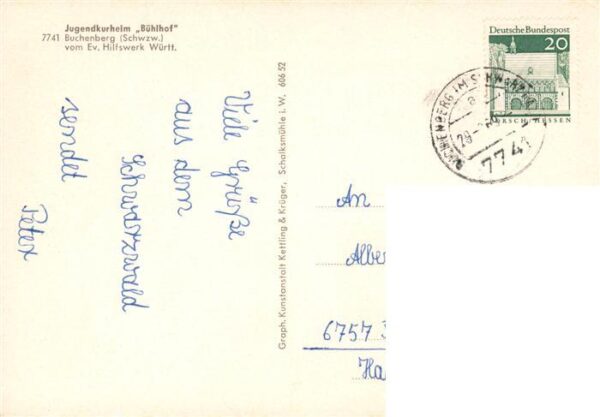 Jugendkurheim „Bühlhof"
7741 Buchenberg (Schwzw.)
vom Ev. Hilfswerk Württ.
Viele Grüße
aus dem
Schwarzwald
sendet
Peter
Graph. Kunstanstalt Kettling & Krüger, Schalksmühle i. W. 606 52
Deutsche Bundespost
20
LORSCH/HESSEN
BUCHENBERG IM SCHWARZW
7741
An
Alber
6757
Ha